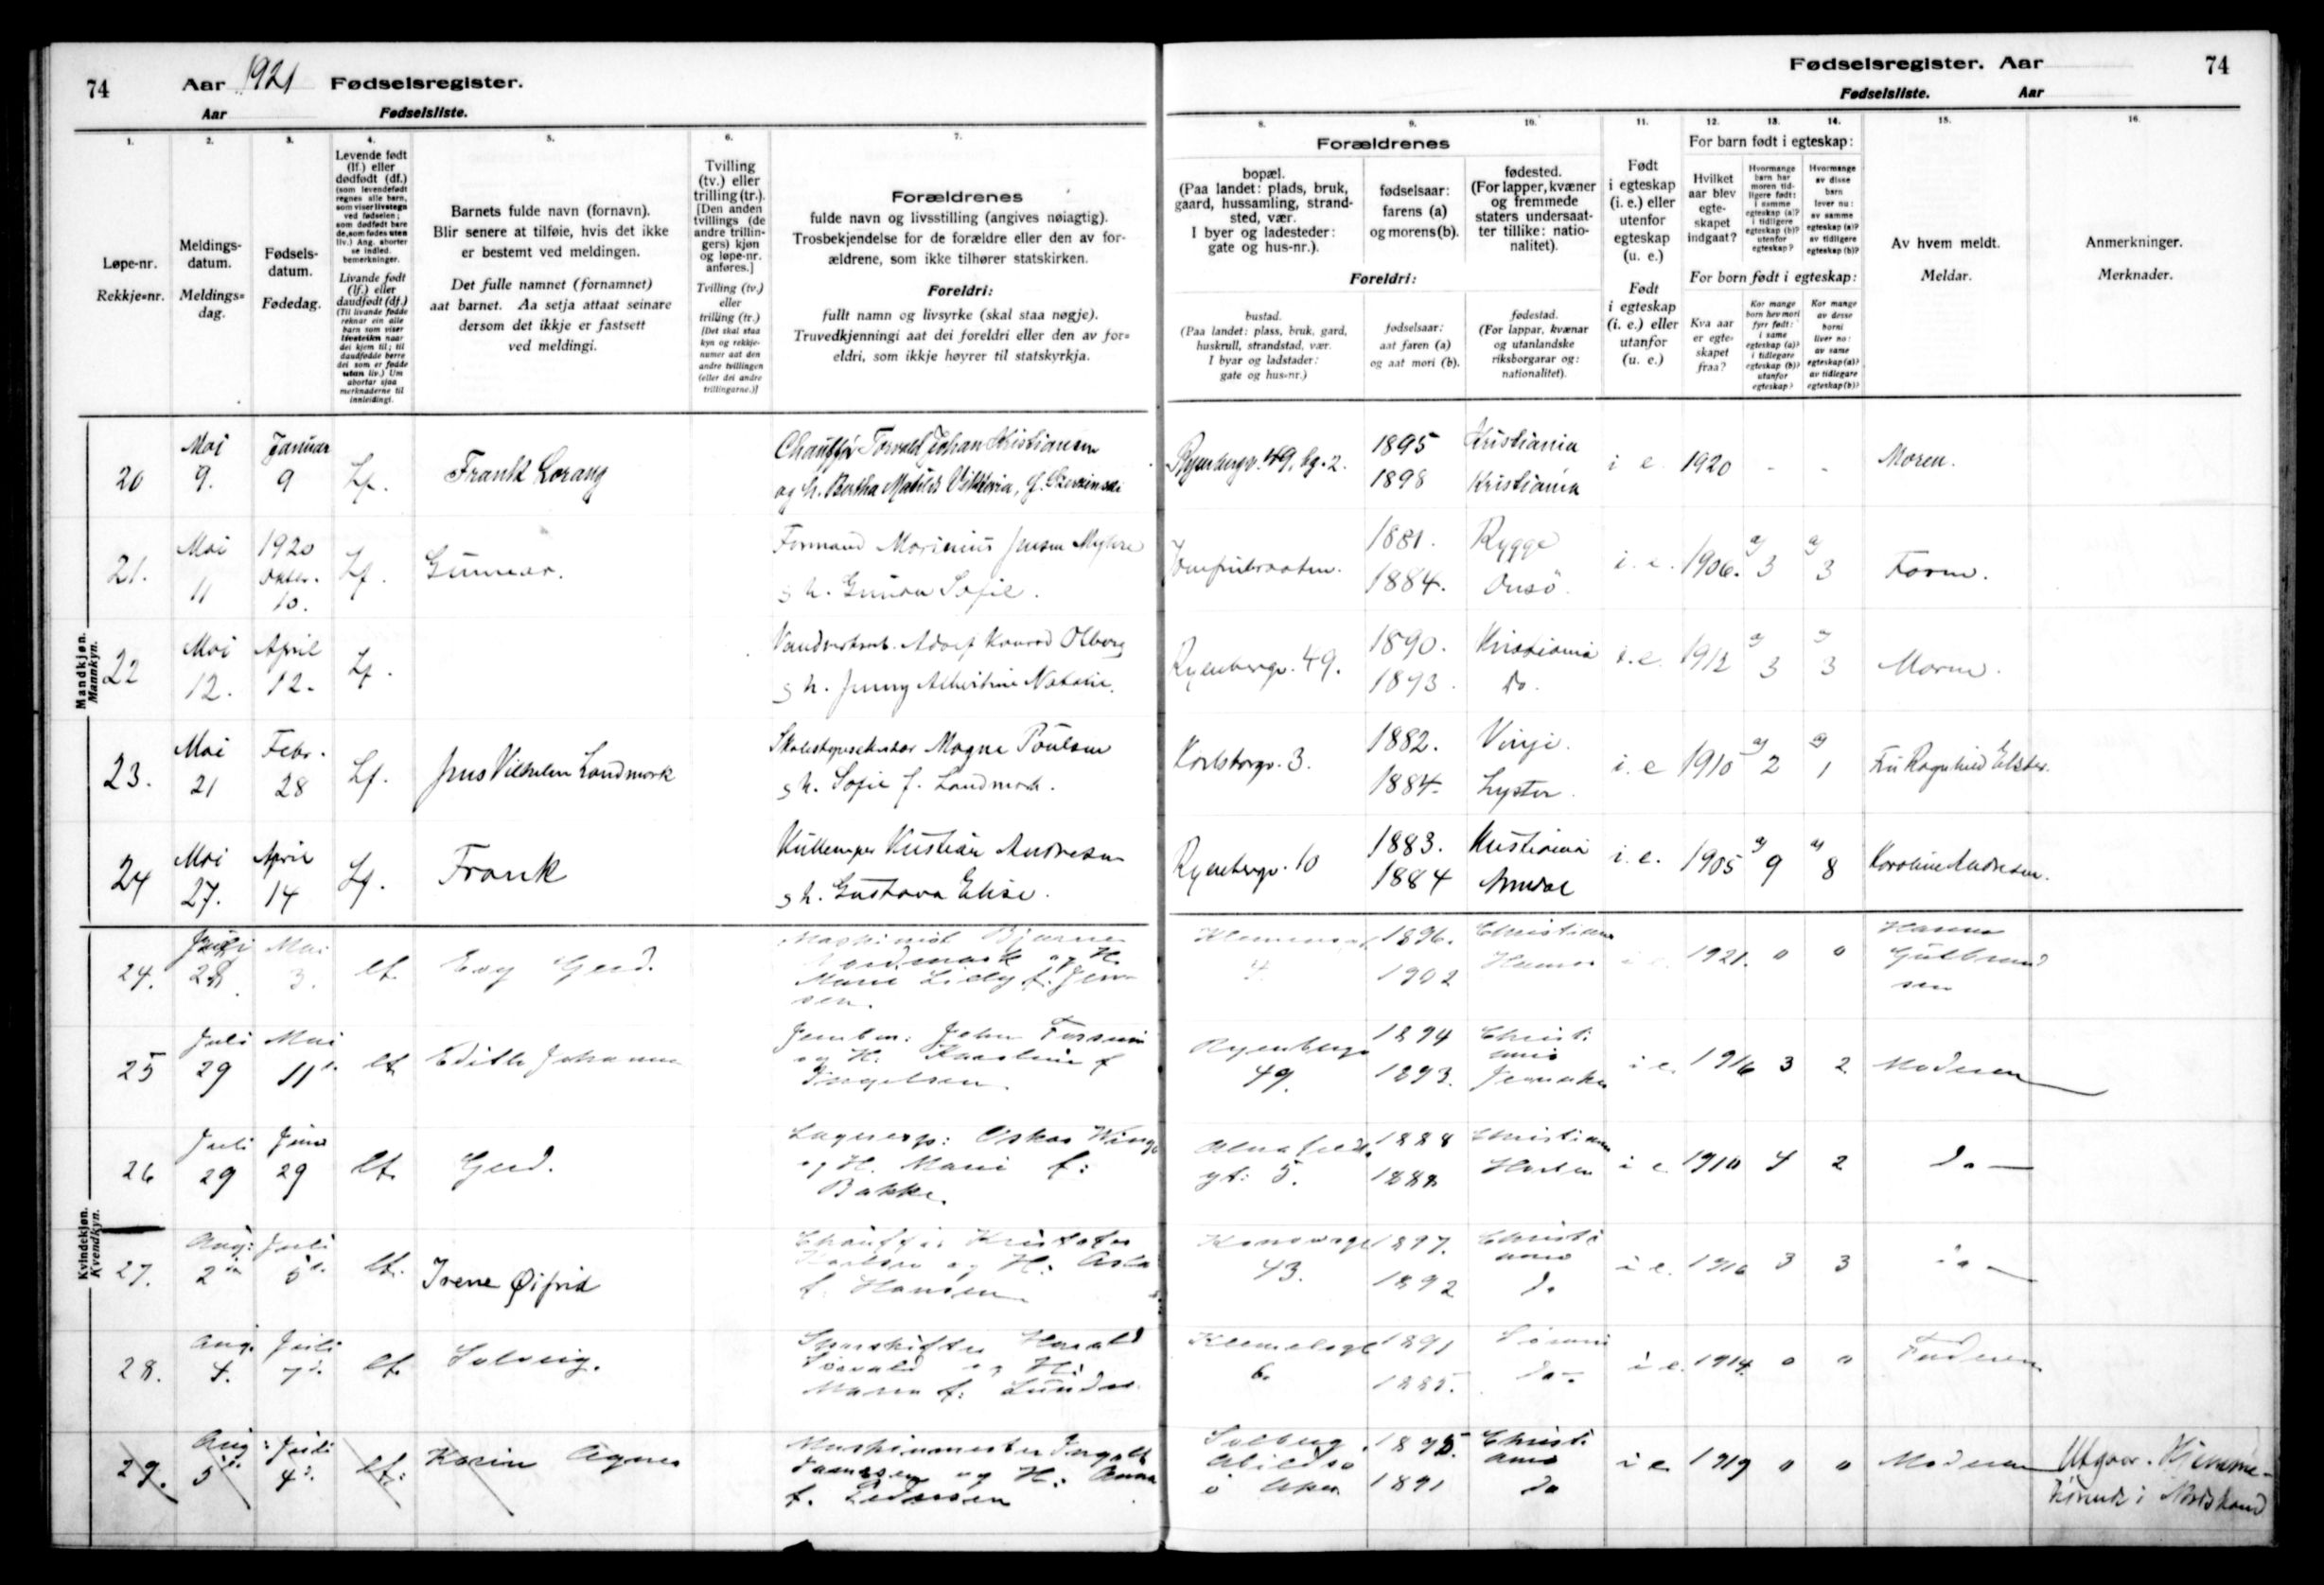 74 Aar 1921 Fødselsregister.
Aar Fødselsliste.
Fødselsregister. Aar 74
Fødselsliste. Aar
1. 2. 3. 4. 5. 6. 7. 8. 9. 10. 11. 12. 13. 14. 15. 16.
Løpe-nr.
Rekkje-nr.
Meldings-
datum.
Meldings-
dag.
Fødsels-
datum.
Fødedag.
Levende født
(lf.) eller
dødfødt (df.)
(som levendefødt
regnes alle barn,
som viser livstegn
ved fødselen;
som dødfødt bare
de, som fødes uten
liv.) Ang. aborter
se indled.
bemerkninger.
Livande født
(lf.) eller
daudfødt (df.)
(Til livande fødde
reknar ein alle
barn som viser
livsteikn naar
dei kjem til; til
daudfødde berre
dei som er fødde
utan liv.) Um
abortar sjaa
merknaderne til
innleidingi.
Barnets fulde navn (fornavn).
Blir senere at tilføie, hvis det ikke
er bestemt ved meldingen.
Det fulle namnet (fornamnet)
aat barnet. Aa setja attaat seinare
dersom det ikkje er fastsett
ved meldingi.
Tvilling
(tv.) eller
trilling (tr.).
[Den anden
tvillings (de
andre trillin-
gers) kjøn
og løpe-nr.
anføres.]
Tvilling (tv.)
eller
trilling (tr.)
[Det skal staa
kyn og rekkje-
numer aat den
andre tvillingen
(eller dei andre
trillingarne.)]
Forældrenes
fulde navn og livsstilling (angives nøiagtig).
Trosbekjendelse for de forældre eller den av for-
ældrene, som ikke tilhører statskirken.
Foreldri:
fullt namn og livsyrke (skal staa nøgje).
Truvedkjenningi aat dei foreldri eller den av for-
eldri, som ikkje høyrer til statskyrkja.
Forældrenes
bopæl.
(Paa landet: plads, bruk,
gaard, hussamling, strand-
sted, vær.
I byer og ladesteder:
gate og hus-nr.).
fødselsaar:
farens (a)
og morens (b).
fødested.
(For lapper, kvæner
og fremmede
staters undersaat-
ter tillike: natio-
nalitet).
Foreldri:
bustad.
(Paa landet: plass, bruk, gard,
huskrull, strandstad, vær.
I byar og ladstader:
gate og hus-nr.)
fødselsaar:
aat faren (a)
og aat mori (b).
fødestad.
(For lappar, kvænar
og utanlandske
riksborgarar og:
nationalitet).
Født
i egteskap
(i. e.) eller
utenfor
egteskap
(u. e.)
Født
i egteskap
(i. e.) eller
utanfor
(u. e.)
For barn født i egteskap:
Hvilket
aar blev
egte-
skapet
indgaat?
Hvormange
barn har
moren tid-
ligere født:
i samme
egteskap (a)?
i tidligere
egteskap (b)?
utenfor
egteskap?
Hvormange
av disse
barn
lever nu:
av samme
egteskap (a)?
av tidligere
egteskap (b)?
For born født i egteskap:
Kva aar
er egte-
skapet
fraa?
Kor mange
born hev mori
fyrr født:
i same
egteskap (a)?
i tidlegare
egteskap (b)?
utanfor
egteskap?
Kor mange
av desse
borni
liver no:
av same
egteskap (a)?
av tidlegare
egteskap (b)?
Av hvem meldt.
Meldar.
Anmerkninger.
Merknader.
Mandkjøn.
Mannkyn.
20 Mai 9. Januar 9 Lf. Frank Lorang
Chauffør Torvald Johan Kristiansen
og h. Bertha Matilde Viktoria, f.
Ryenbergv. 49, bg. 2. 1895 1898 Kristiania Kristiania i e 1920 - - Moren.
21. Mai 11 1920 Oktbr. 10. Lf. Gunnar.
Formand Marinius Jensen Myhre
g h. Gunda Sofie.
1881. 1884. Rygge Onsö i. e. 1906. a) 3 a) 3 Faren.
22 Mai 12. April 12. Lf.
Adolf Konrad Olberg
g h. Jenny Albertine Natalie.
Ryenbergv. 49. 1890. 1893. Kristiania do. i. e. 1912 a) 3 a) 3 Moren.
23. Mai 21 Febr. 28 Lf. Jens Vilhelm Landmark
Magne Poulsen
g h. Sofie f. Landmark.
Karlsborgv. 3. 1882. 1884. Vinje. Lyster. i. e 1910 a) 2 a) 1 Fru Ragnhild Elster.
24 Mai 27. April 14 Lf. Frank
Kristian Andresen
g h. Gustava Elise.
Ryenbergv. 10 1883. 1884 Kristiania Arendal i. e. 1905 a) 9 a) 8 Karoline Andresen.
Kvindekjøn.
Kvendkyn.
24. Juli 28. Mai 3. lf. Evy Gerd.
Maskinist Bjarne
Nordmark og H.
Marie Lilly f: Jen-
sen.
4 1896. 1902 Christiania Hamar i e 1921. 0 0 Hanna
Gulbrand
sen
25 Juli 29 Mai 11 lf. Edith Johanne
John
og H. Karoline f
Ingelsen.
Ryenbergv 49. 1894 1893. Christi
ania
Jevnaker i e. 1916 3 2. Moderen
26 Juli 29 Juni 29 lf. Gerd.
Lagereksp: Oskar Winge
og H. Marie f:
Bakke.
gt: 5. 1888 1888 Christiania i e 1910 4 2 do —
27. Aug: 2 Juli 5 lf. Irene Øifrid
Chauffør Kristofer
Karlsen og H: Asla
f. Hansen
43. 1897. 1892 Christi
ania
do i e. 1916 3 3 do —
28. Aug. 4. Juli 7 lf. Solveig.
Harald
og H:
Maren f: Lunde.
6. 1891 1885. do — i e. 1914. 0 0 Faderen
29. Aug 5 Juli 4 lf: Karin Agnes
Maskinmester Ingolf
og H: Anna
f. Pedersen
Solberg
Abildsø
i Aker 1895. 1891 Christi
ania
do i e 1919 0 0 Moderen
Utgaar. Hjemme-